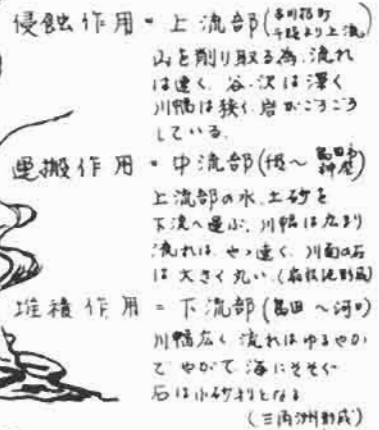 侵蝕作用 = 上流部(本川根町
千頭より上流)
山を削り取る為、流れ
は速く、谷・沢は深く
川幅は狭く、岩がごろごろ
している。
運搬作用 = 中流部(〜島田市
神座)
上流部の水、土砂を
下流へ運ぶ、川幅は広まり
流れは、やゝ速く、川面の石
は大きく丸い(扇状地形成)
堆積作用 = 下流部(島田 〜河口)
川幅広く 流れはゆるやか
で やがて 海にそそぐ
石は小砂利となる
(三角洲形成)